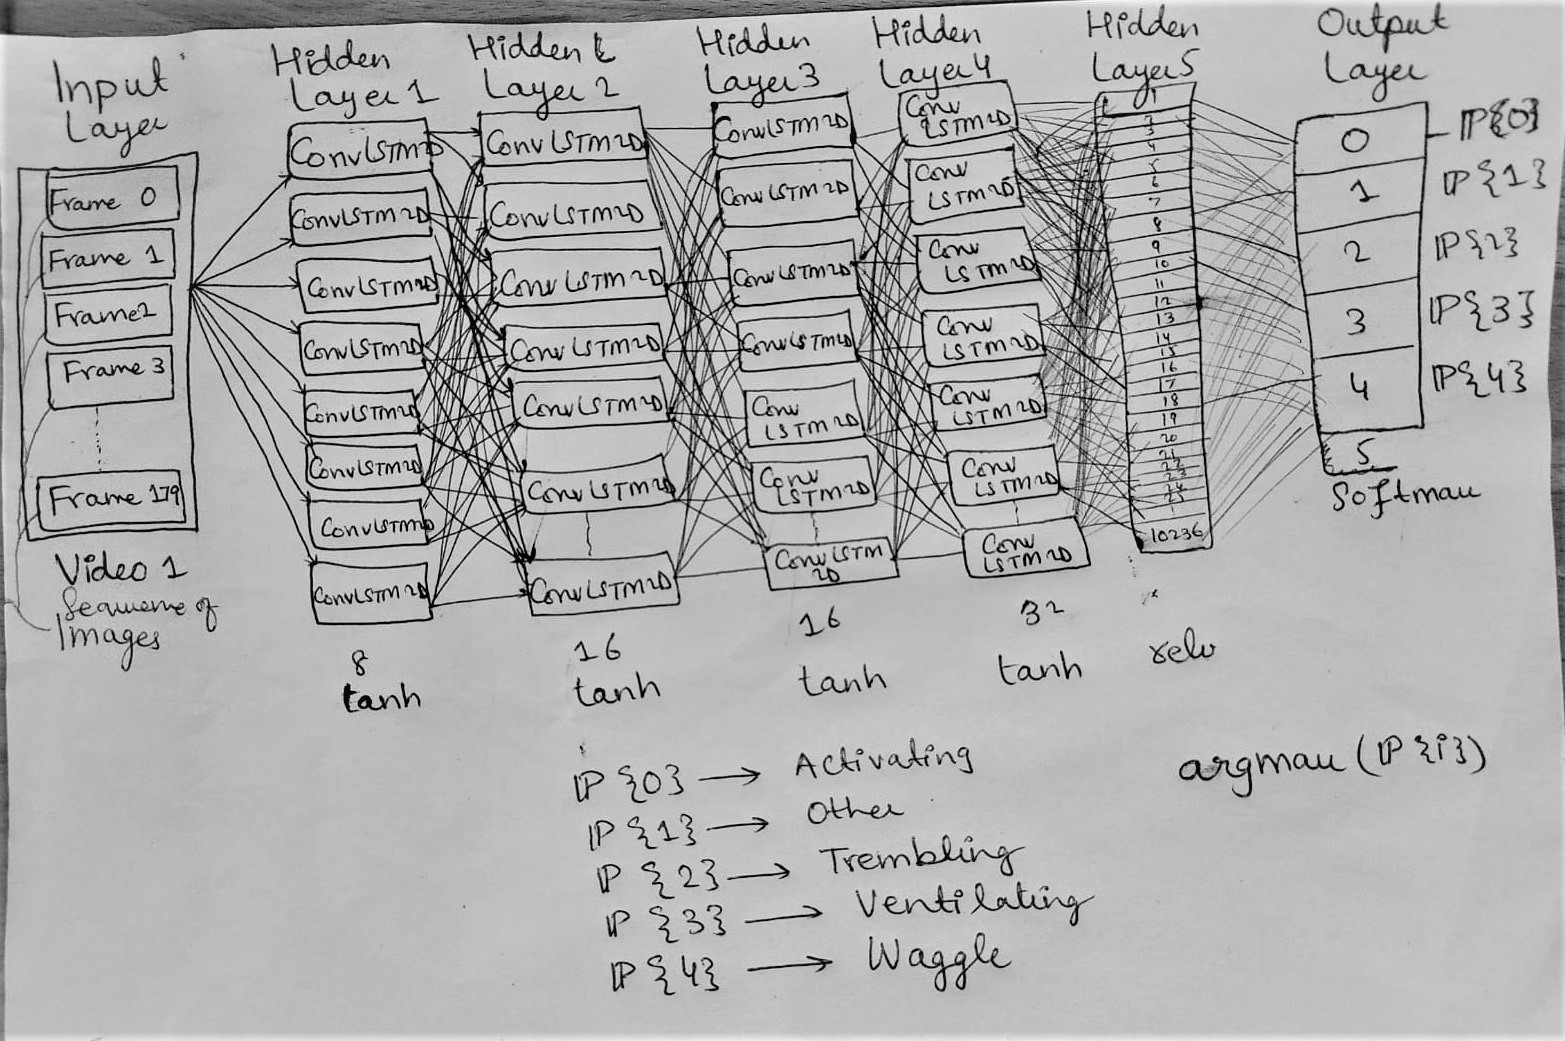 Input
Layer
Frame 0
Frame 1
Frame2
Frame 3
Frame 179
Video 1
Sequence of
Images
Hidden
Layer 1
ConvLSTM2D
ConvLSTM2D
ConvLSTM2D
ConvLSTM2D
ConvLSTM2D
ConvLSTM2D
ConvLSTM2D
ConvLSTM2D
8
tanh
Hidden
Layer 2
ConvLSTM2D
ConvLSTM2D
ConvLSTM2D
ConvLSTM2D
ConvLSTM2D
ConvLSTM2D
ConvLSTM2D
16
tanh
Hidden
Layer3
ConvLSTM2D
ConvLSTM2D
ConvLSTM2D
ConvLSTM2D
Conv
LSTM2D
Conv
LSTM2D
ConvLSTM
2D
16
tanh
Hidden
Layer4
Conv
LSTM2D
Conv
LSTM2D
Conv
LSTM2D
Conv
LSTM2D
Conv
LSTM2D
Conv
LSTM2D
Conv
LSTM2D
32
tanh
Hidden
Layer5
1
2
3
4
5
6
7
8
9
10
11
12
13
14
15
16
17
18
19
20
21
22
23
24
25
10236
relu
Output
Layer
0
1
2
3
4
5
Softmax
ℙ{0}
ℙ{1}
ℙ{2}
ℙ{3}
ℙ{4}
ℙ{0} → Activating
ℙ{1} → Other
ℙ{2} → Trembling
ℙ{3} → Ventilating
ℙ{4} → Waggle
argmax (ℙ{i})